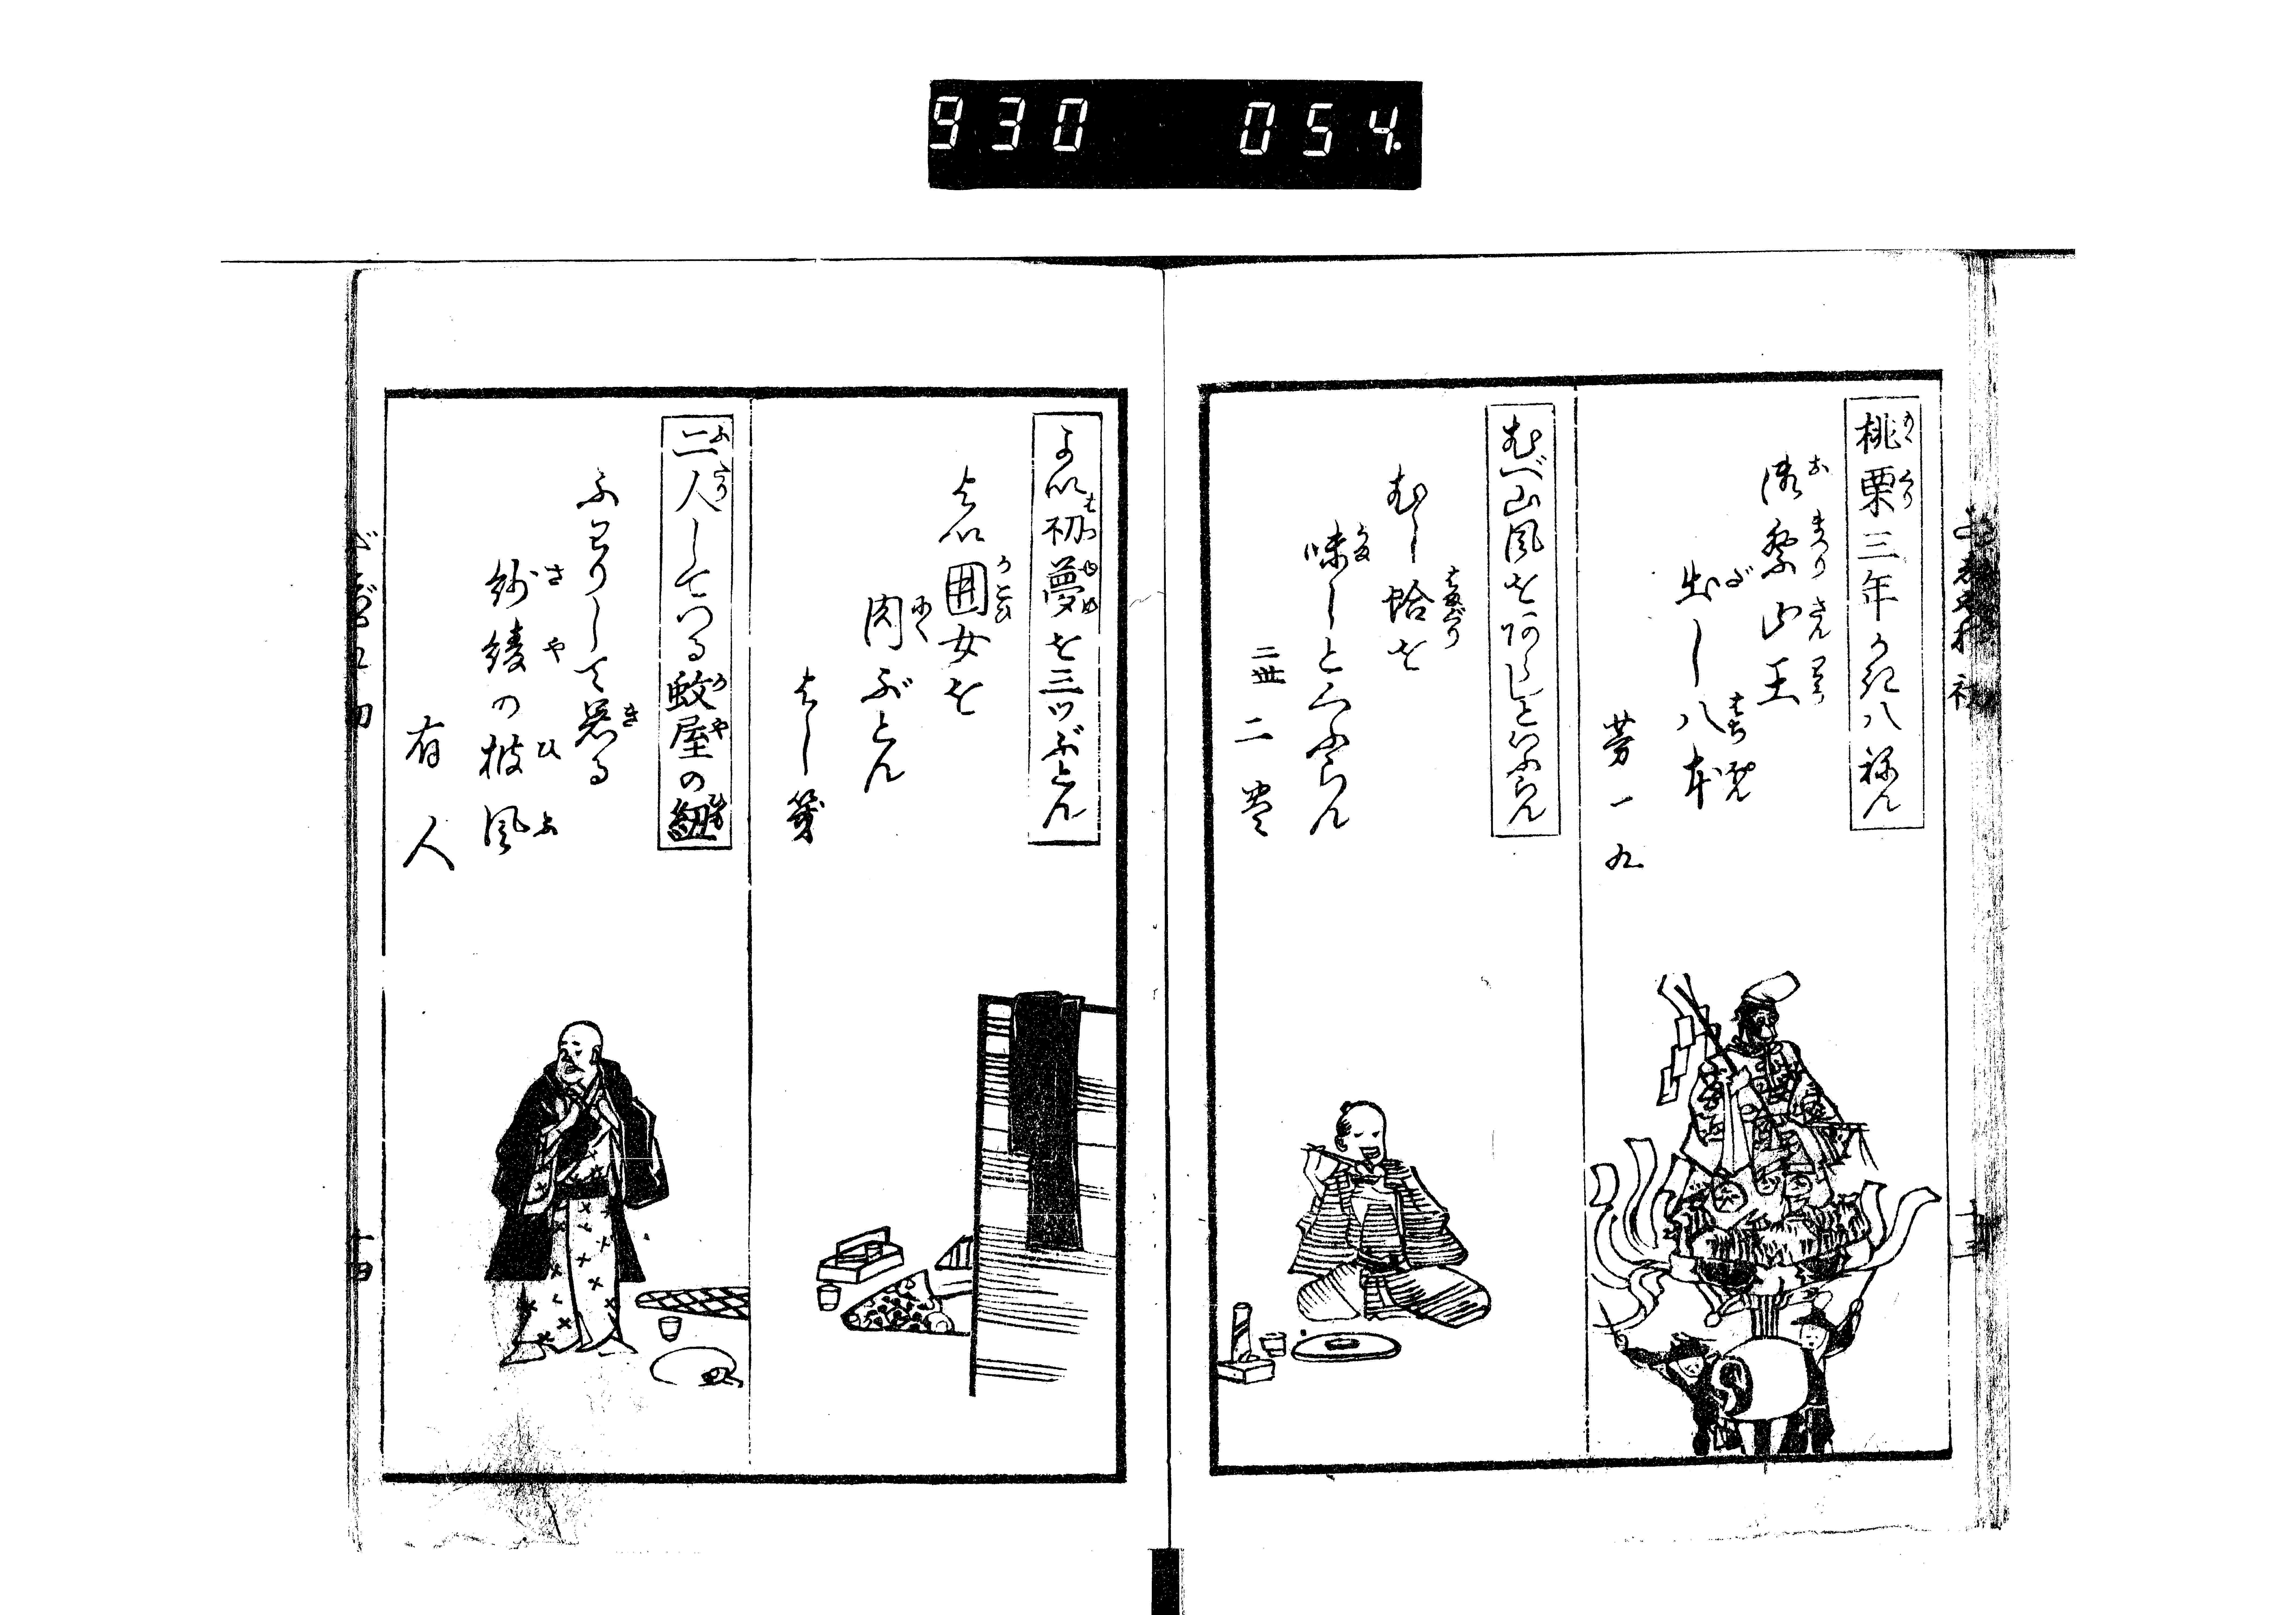 930 054.
桃栗三年かき八ねん
御祭山王
出し八本
芳一九
むべ山風をあらしといふらん
むし蛤を
味しと云ふらん
二世 二葉
よい初夢を三ツぶとん
よい囲女を
肉ぶとん
よし簑
二人してつる蚊屋の紐
ふわりして着る
紗綾の被風
有人